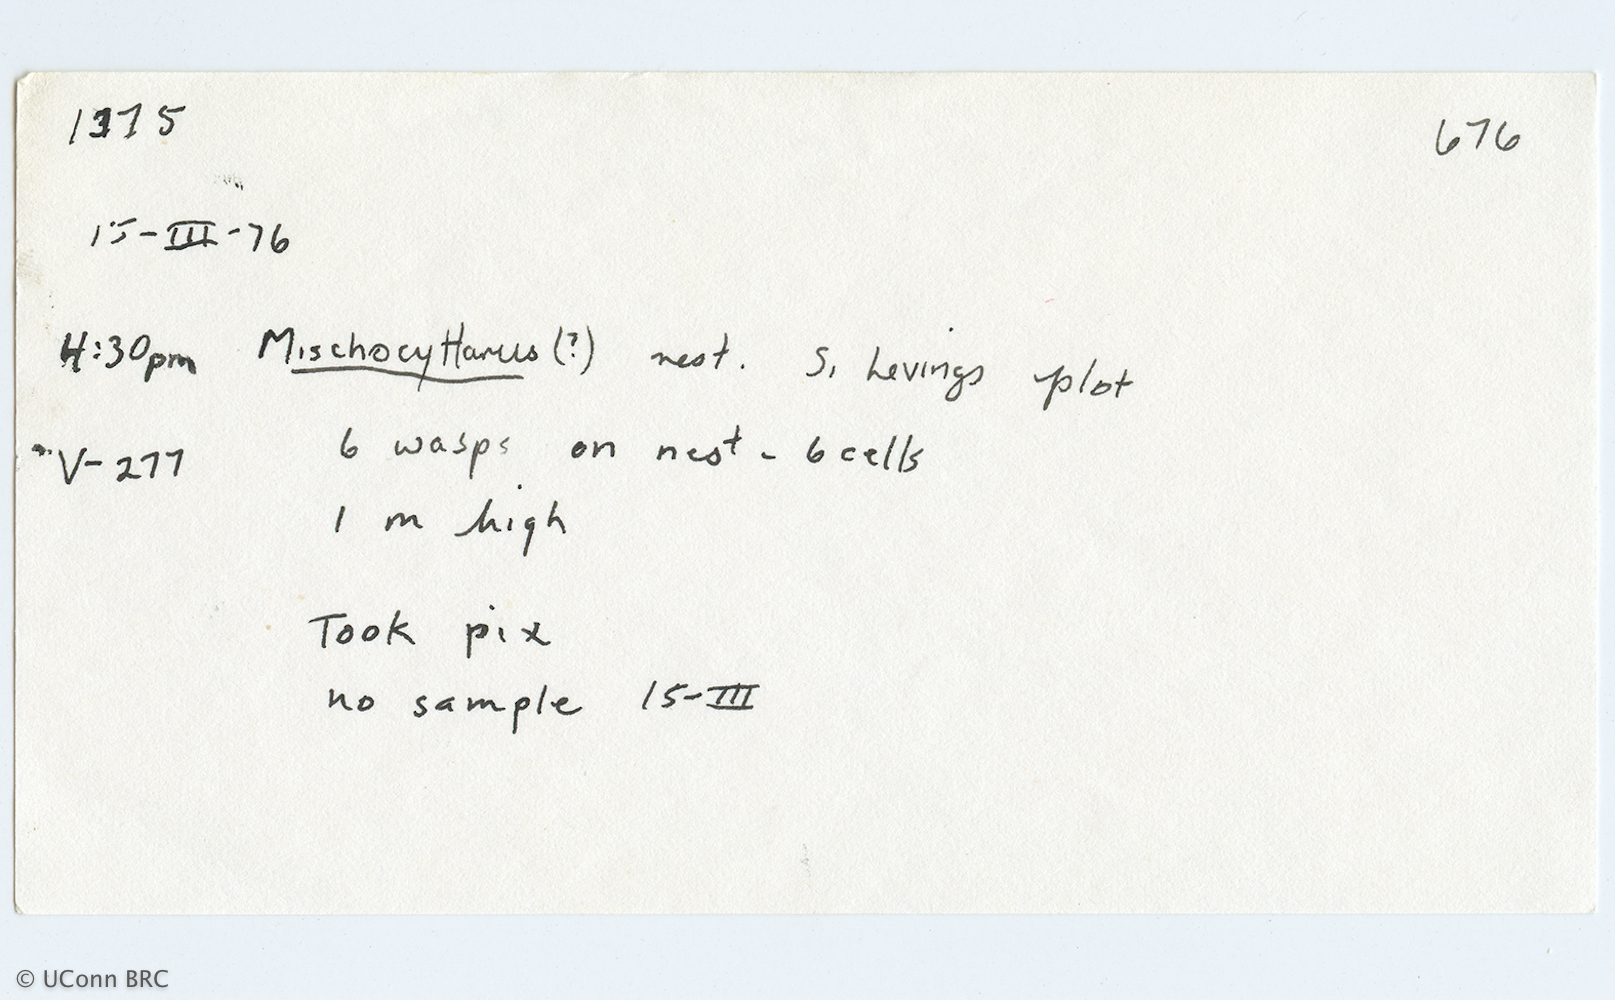 1375 676
15-III-76
4:30pm Mischocyttarus(?) nest. S. Levings plot
V-277 6 wasps on nest - 6 cells
1 m high
Took pix
no sample 15-III
© UConn BRC